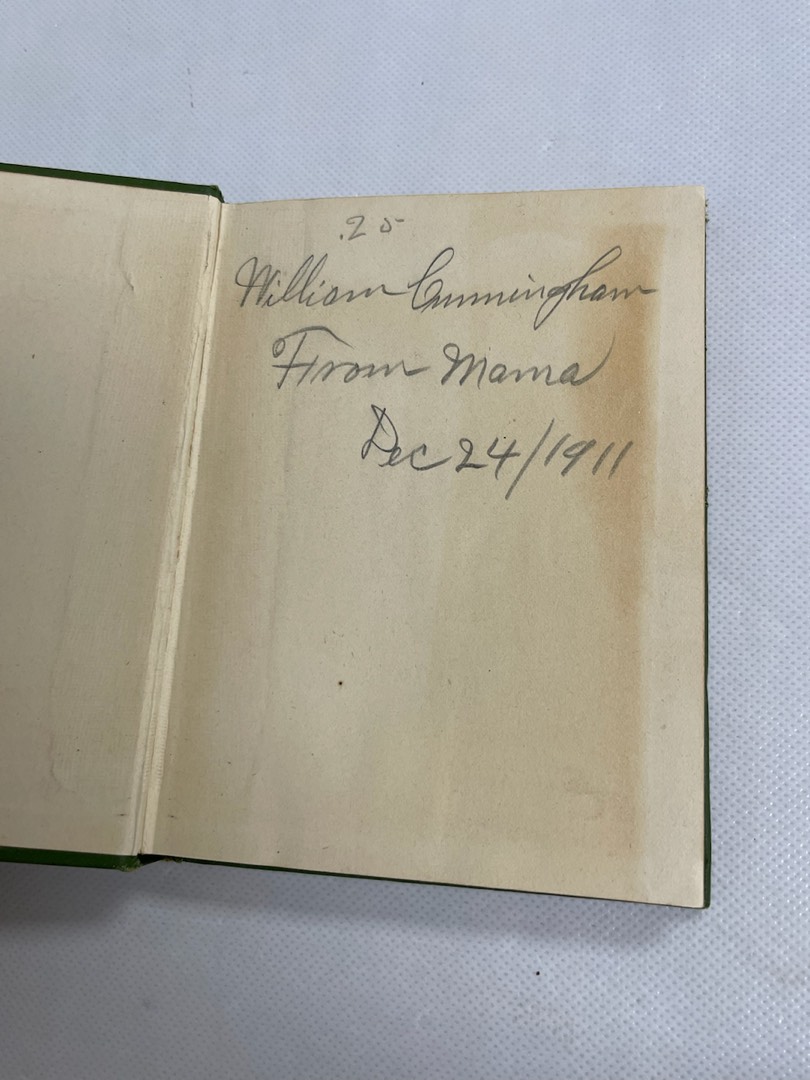 .25
William Cunningham
From Mama
Dec 24/1911